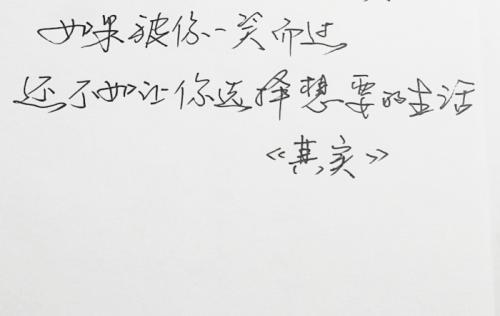 如果被你一笑而过
还不如让你选择想要的生活
《其实》